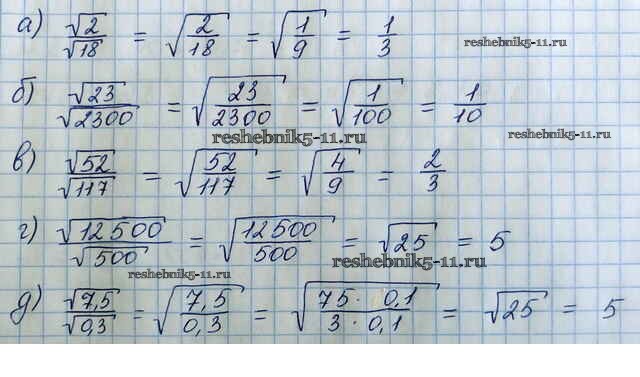 а) √2/√18 = √(2/18) = √(1/9) = 1/3
reshebnik5-11.ru
б) √23/√2300 = √(23/2300) = √(1/100) = 1/10
reshebnik5-11.ru
reshebnik5-11.ru
в) √52/√117 = √(52/117) = √(4/9) = 2/3
г) √12500/√500 = √(12500/500) = √25 = 5
reshebnik5-11.ru
reshebnik5-11.ru
д) √7,5/√0,3 = √(7,5/0,3) = √(75 · 0,1/3 · 0,1) = √25 = 5